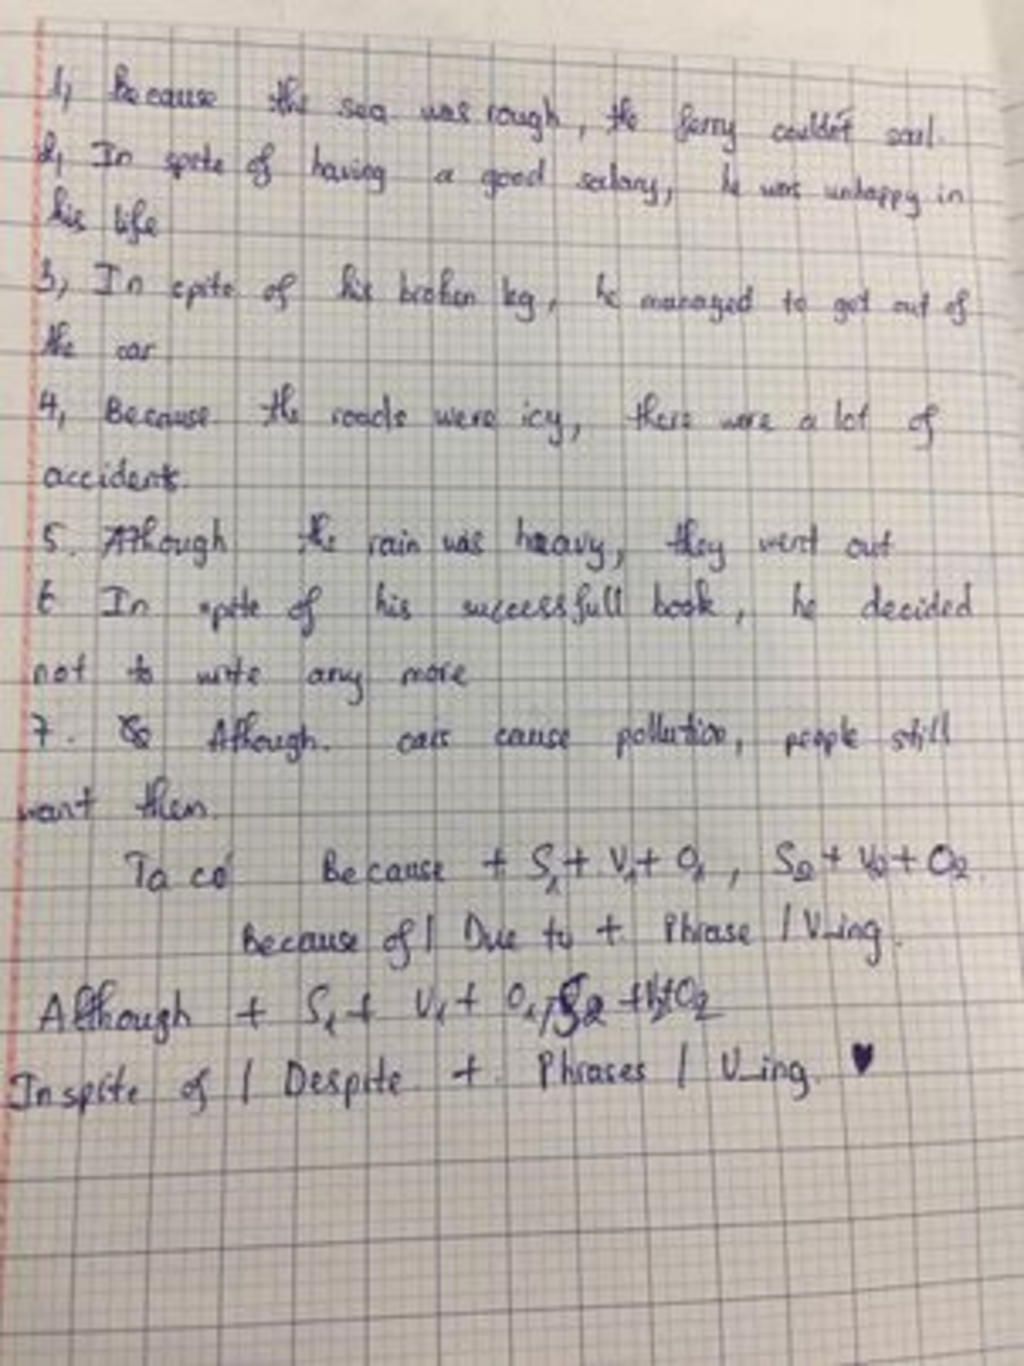 1, Because the sea was rough, the ferry couldn't sail.
2, In spite of having a good salary, he was unhappy in
his life
3, In spite of his broken leg, he managed to get out of
the car
4, Because the roads were icy, there were a lot of
accidents.
5. Although the rain was heavy, they went out
6 In spite of his successfull book, he decided
not to write any more
7. Although. cars cause pollution, people still
want them.
Ta có Because + S1 + V1 + O1, S2 + V2 + O2.
Because of / Due to + Phrase / V_ing.
Although + S1 + V1 + O1, S2 + V2 + O2
In spite of / Despite + Phrases / V_ing. ♥